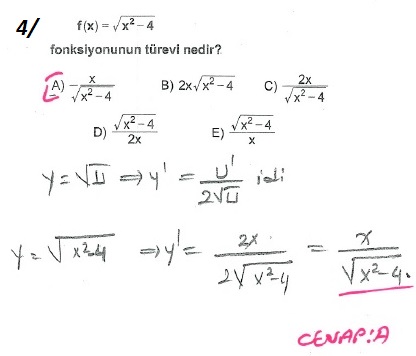 4/ f(x) = √(x² – 4)
fonksiyonunun türevi nedir?
A) x/√(x² – 4) B) 2x√(x² – 4) C) 2x/√(x² – 4)
D) √(x² – 4)/2x E) √(x² – 4)/x
y = √U ⇒ y' = U'/2√U idi
y = √(x²-4) ⇒ y' = 2x/2√(x²-4) = x/√(x²-4).
CEVAP:A